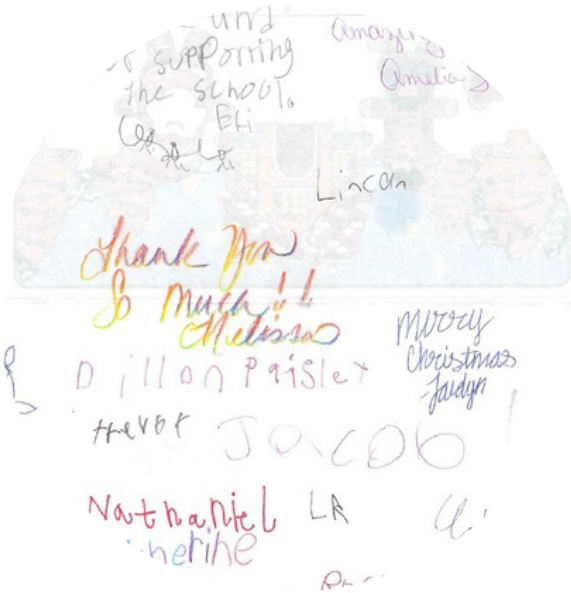 und
supporting
the school.
Eli
Amazing
Amelia
Lincoln
Thank You
So Much!!
Melissa
Merry
Christmas
-Jaidyn
Dillon Paisley
trevor
Jacob
Nathaniel
LR
herine